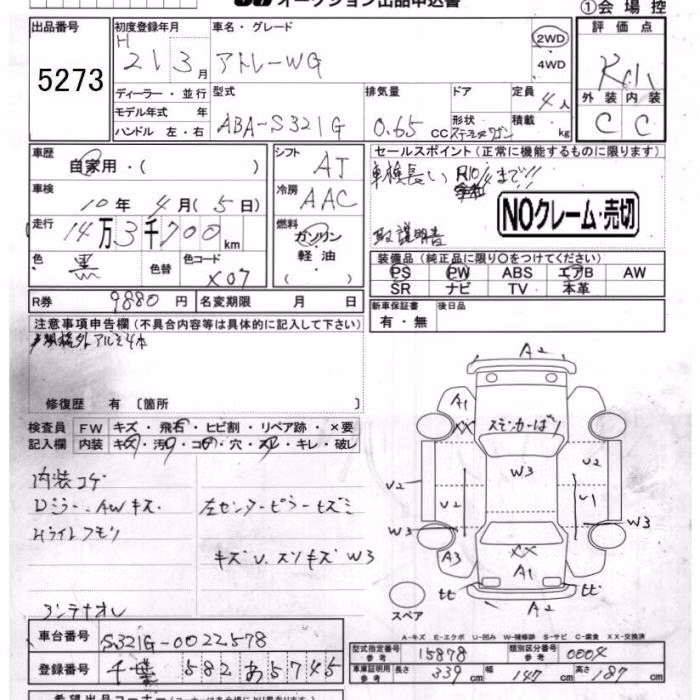 オークション出品申込書
①会場控
出品番号
5273
初度登録年月
H
21 3月
車名・グレード
アトレーWG
2WD
4WD
評価点
外装 内装
C C
ディーラー・並行
モデル年式 年
ハンドル 左・右
型式
ABA-S321G
排気量
0.65 cc
ドア
形状
ステーションワゴン
定員
4人
積載
kg
車歴
自家用・( )
シフト
AT
セールスポイント(正常に機能するものに限ります)
車検長い R10/4まで!!
取説明書
NOクレーム・売切
車検
10年 4月(5日)
冷房
AAC
走行
14万3千700km
燃料
ガソリン
軽油
( )
色
黒
色替
色コード
X07
装備品(純正品に限り○をつけてください)
PS PW ABS エアB AW
SR ナビ TV 本革
R券 9880円
名変期限 月 日
新車保証書
有・無
後日品
注意事項申告欄(不具合内容等は具体的に記入して下さい)
規格外アルミ4本
修復歴 有 〔箇所 〕
検査員
記入欄
FW キズ・飛石・ヒビ割・リペア跡・×要
内装 キズ・汚レ・コゲ・穴・スレ・キレ・破レ
内装コゲ
Dミラー、AWキズ
左センターピラーヒズミ
Hライトクモリ
キズV、スリキズW3
アンテナオレ
A2
A1
XX
ステッカーばり
W3
U2
U2
U2
U1
W3
W3
A3
XX
A1
A2
スペア
A-キズ E-エクボ U-凹み W-補修跡 S-サビ C-腐食 XX-交換済
車台番号
S321G-0022578
登録番号
千葉 582 あ 5745
型式指定番号
参考
15878
類別区分番号
参考
0004
車庫証明用
参考
長さ 339cm
幅 147cm
高さ 187cm
希望出品コーナー